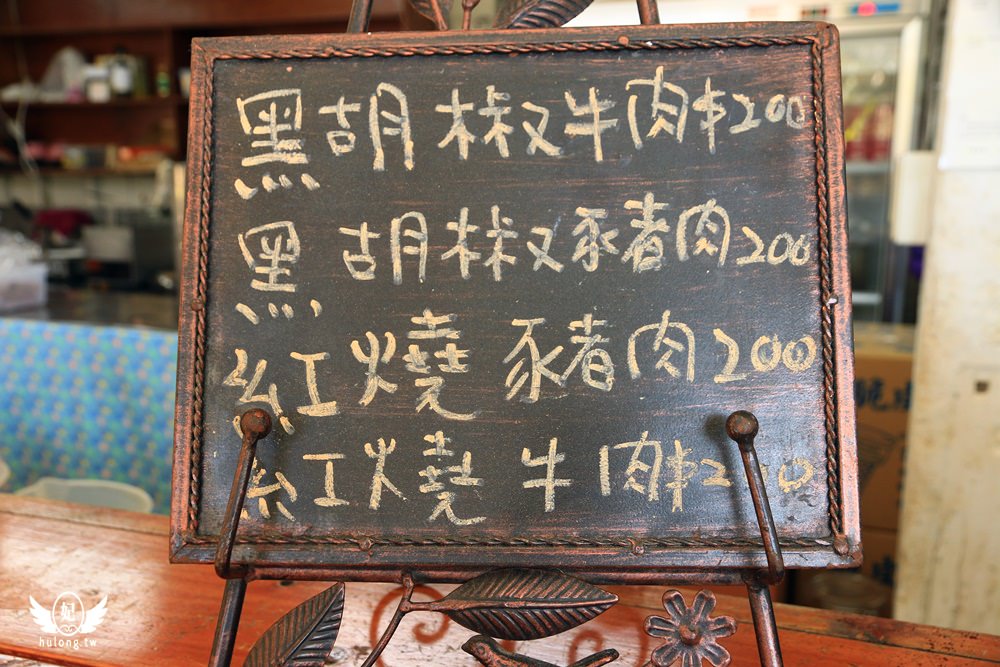 黑胡椒牛肉$200
黑胡椒豬肉200
紅燒豬肉200
紅燒牛肉$200
妃
hulong.tw